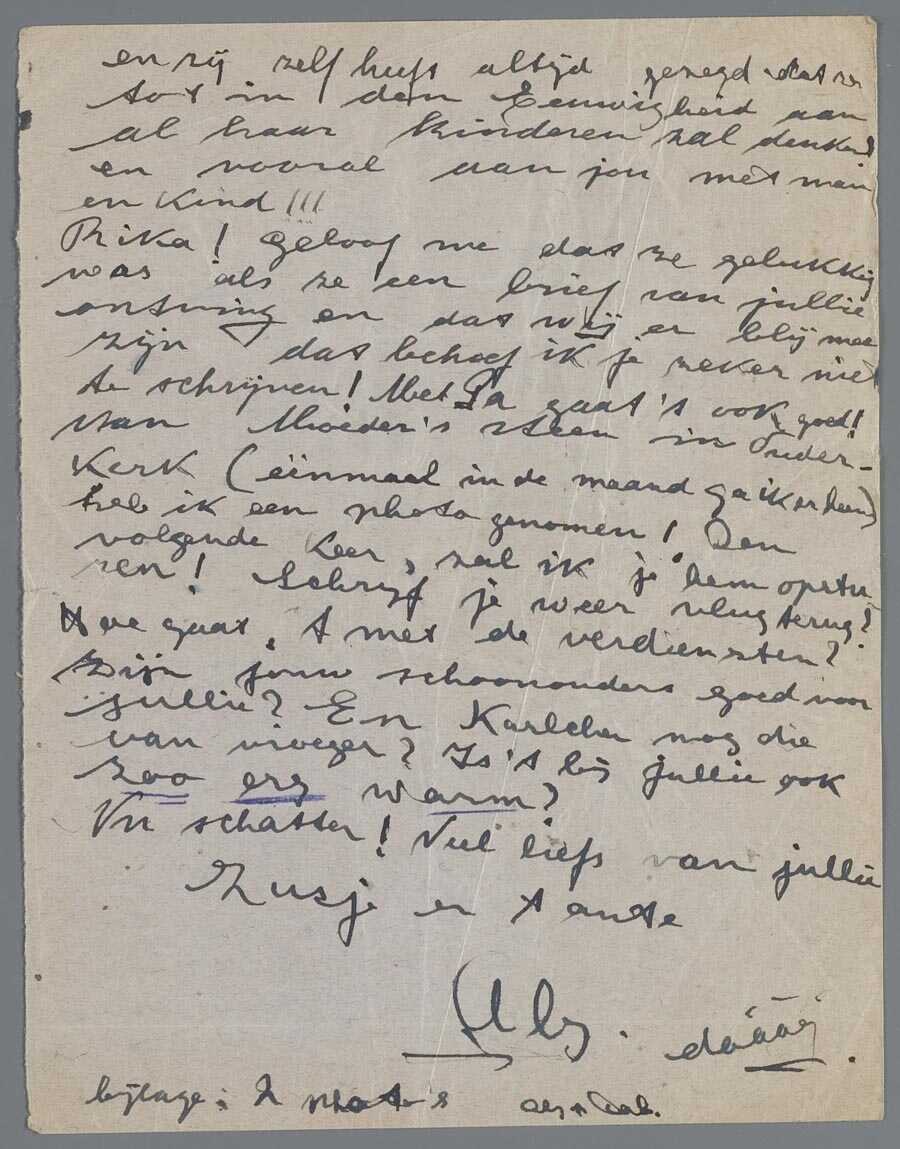 en zij zelf heeft altijd gezegd dat ze
tot in den Eeuwigheid aan
al haar Kinderen zal denken
en vooral aan jou met man
en Kind !!!
Rika! Geloof me dat ze gelukkig
was als ze een brief van jullie
ontving en dat wij er blij mee
zijn dat behoef ik je zeker niet
te schrijven! Met Pa gaat 't ook goed!
Van Moeder's steen in Ouder-
Kerk (éénmaal in de maand ga ik er heen)
heb ik een photo genomen! Den
volgende Keer, zal ik je hem opstu
ren! Schryf je weer vlug terug?
Hoe gaat 't met de verdiensten?
Zijn jouw schoonouders goed voor
jullie? En Karlchen nog die
van vroeger? Is 't bij jullie ook
zoo erg warm?
Nu schatten! Veel liefs van jullie
Zusje en tante
dááág.
bijlage: 2 photo's